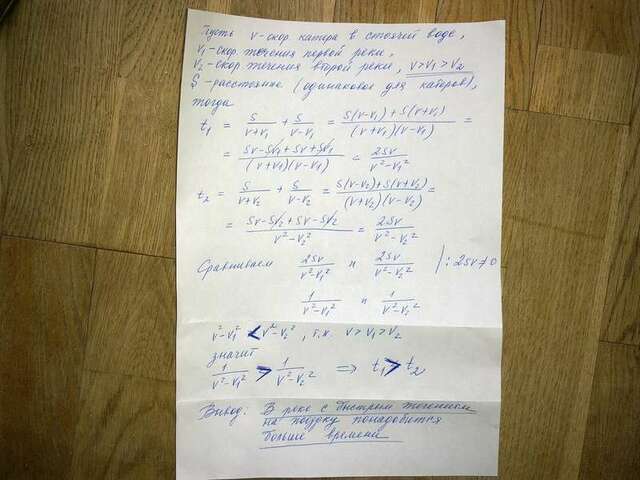 Пусть v - скор. катера в стоячей воде,
v₁ - скор. течения первой реки,
v₂ - скор. течения второй реки, v > v₁ > v₂
S - расстояние (одинаковое для катеров),
тогда
t₁ = S/(v+v₁) + S/(v-v₁) = (S(v-v₁)+S(v+v₁))/((v+v₁)(v-v₁)) =
= (Sv-Sv₁+Sv+Sv₁)/((v+v₁)(v-v₁)) = 2Sv/(v²-v₁²)
t₂ = S/(v+v₂) + S/(v-v₂) = (S(v-v₂)+S(v+v₂))/((v+v₂)(v-v₂)) =
= (Sv-Sv₂+Sv-Sv₂)/(v²-v₂²) = 2Sv/(v²-v₂²)
Сравниваем 2Sv/(v²-v₁²) и 2Sv/(v²-v₂²) |: 2Sv≠0
1/(v²-v₁²) и 1/(v²-v₂²)
v²-v₁² < v²-v₂², т.к. v > v₁ > v₂
значит
1/(v²-v₁²) > 1/(v²-v₂²) ⇒ t₁ > t₂
Вывод: В реке с быстрым течением
на поездку понадобится
больше времени